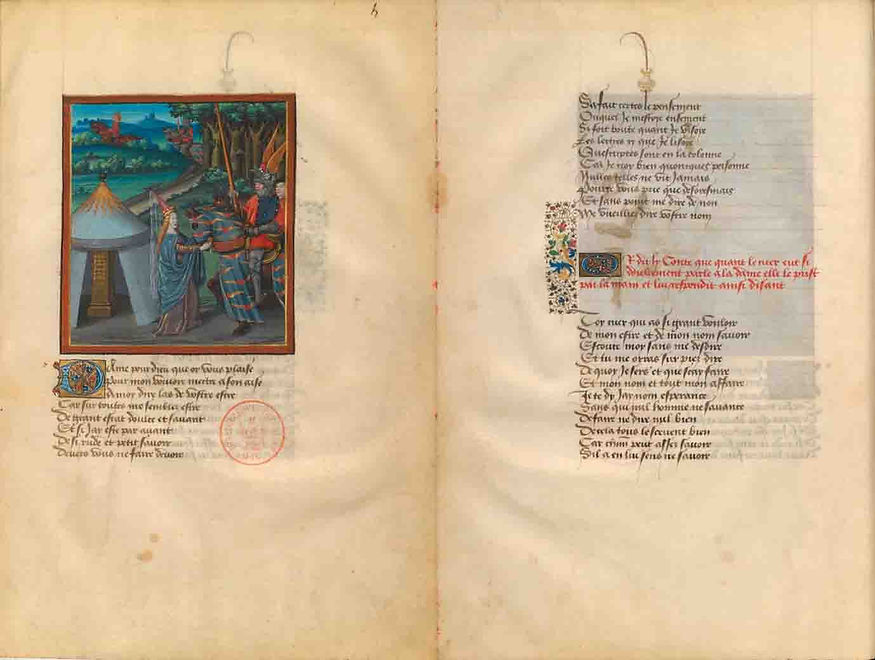 Dame pour dieu que or vous plaise
Pour mon vouloir mettre a son aise
A moy dire las de vostre estre
Car sur toutes me semblez estre
De grant estat doulce et savant
Et si Jay este par avant
De si rude et petit savoir
Devers vous ne faire devoir
Sa fait certes le pensement
Ouquel Je mestoye
Si fort boute quant Je visoye
Les lettres et que Je lisoye
Qui escriptes sont en la colonne
Car Je voy bien quoncques personne
Nulles telles ne vit Jamais
Pource vous prie que desoresmais
Et sans point me dire de non
Me vueilliez dire vostre nom
Or dit ly Conte que quant le cuer eut si
doulcement parle a la dame elle le prist
par la main et lui respondit ainsi disant
Cor cuer qui as si grant vouloir
de mon estre et de mon nom savoir
Escoute moy sans me desdire
Et tu me orras sur piez dire
De quoy Je sers et que scay faire
Et mon nom et tout mon affaire
Je te dy Jay nom esperance
Sans qui nul homme ne savance
De faire ne dire nul bien
De cela tous le scevent bien
Car chun peut assez savoir
Sil a en lui sens ne savoir